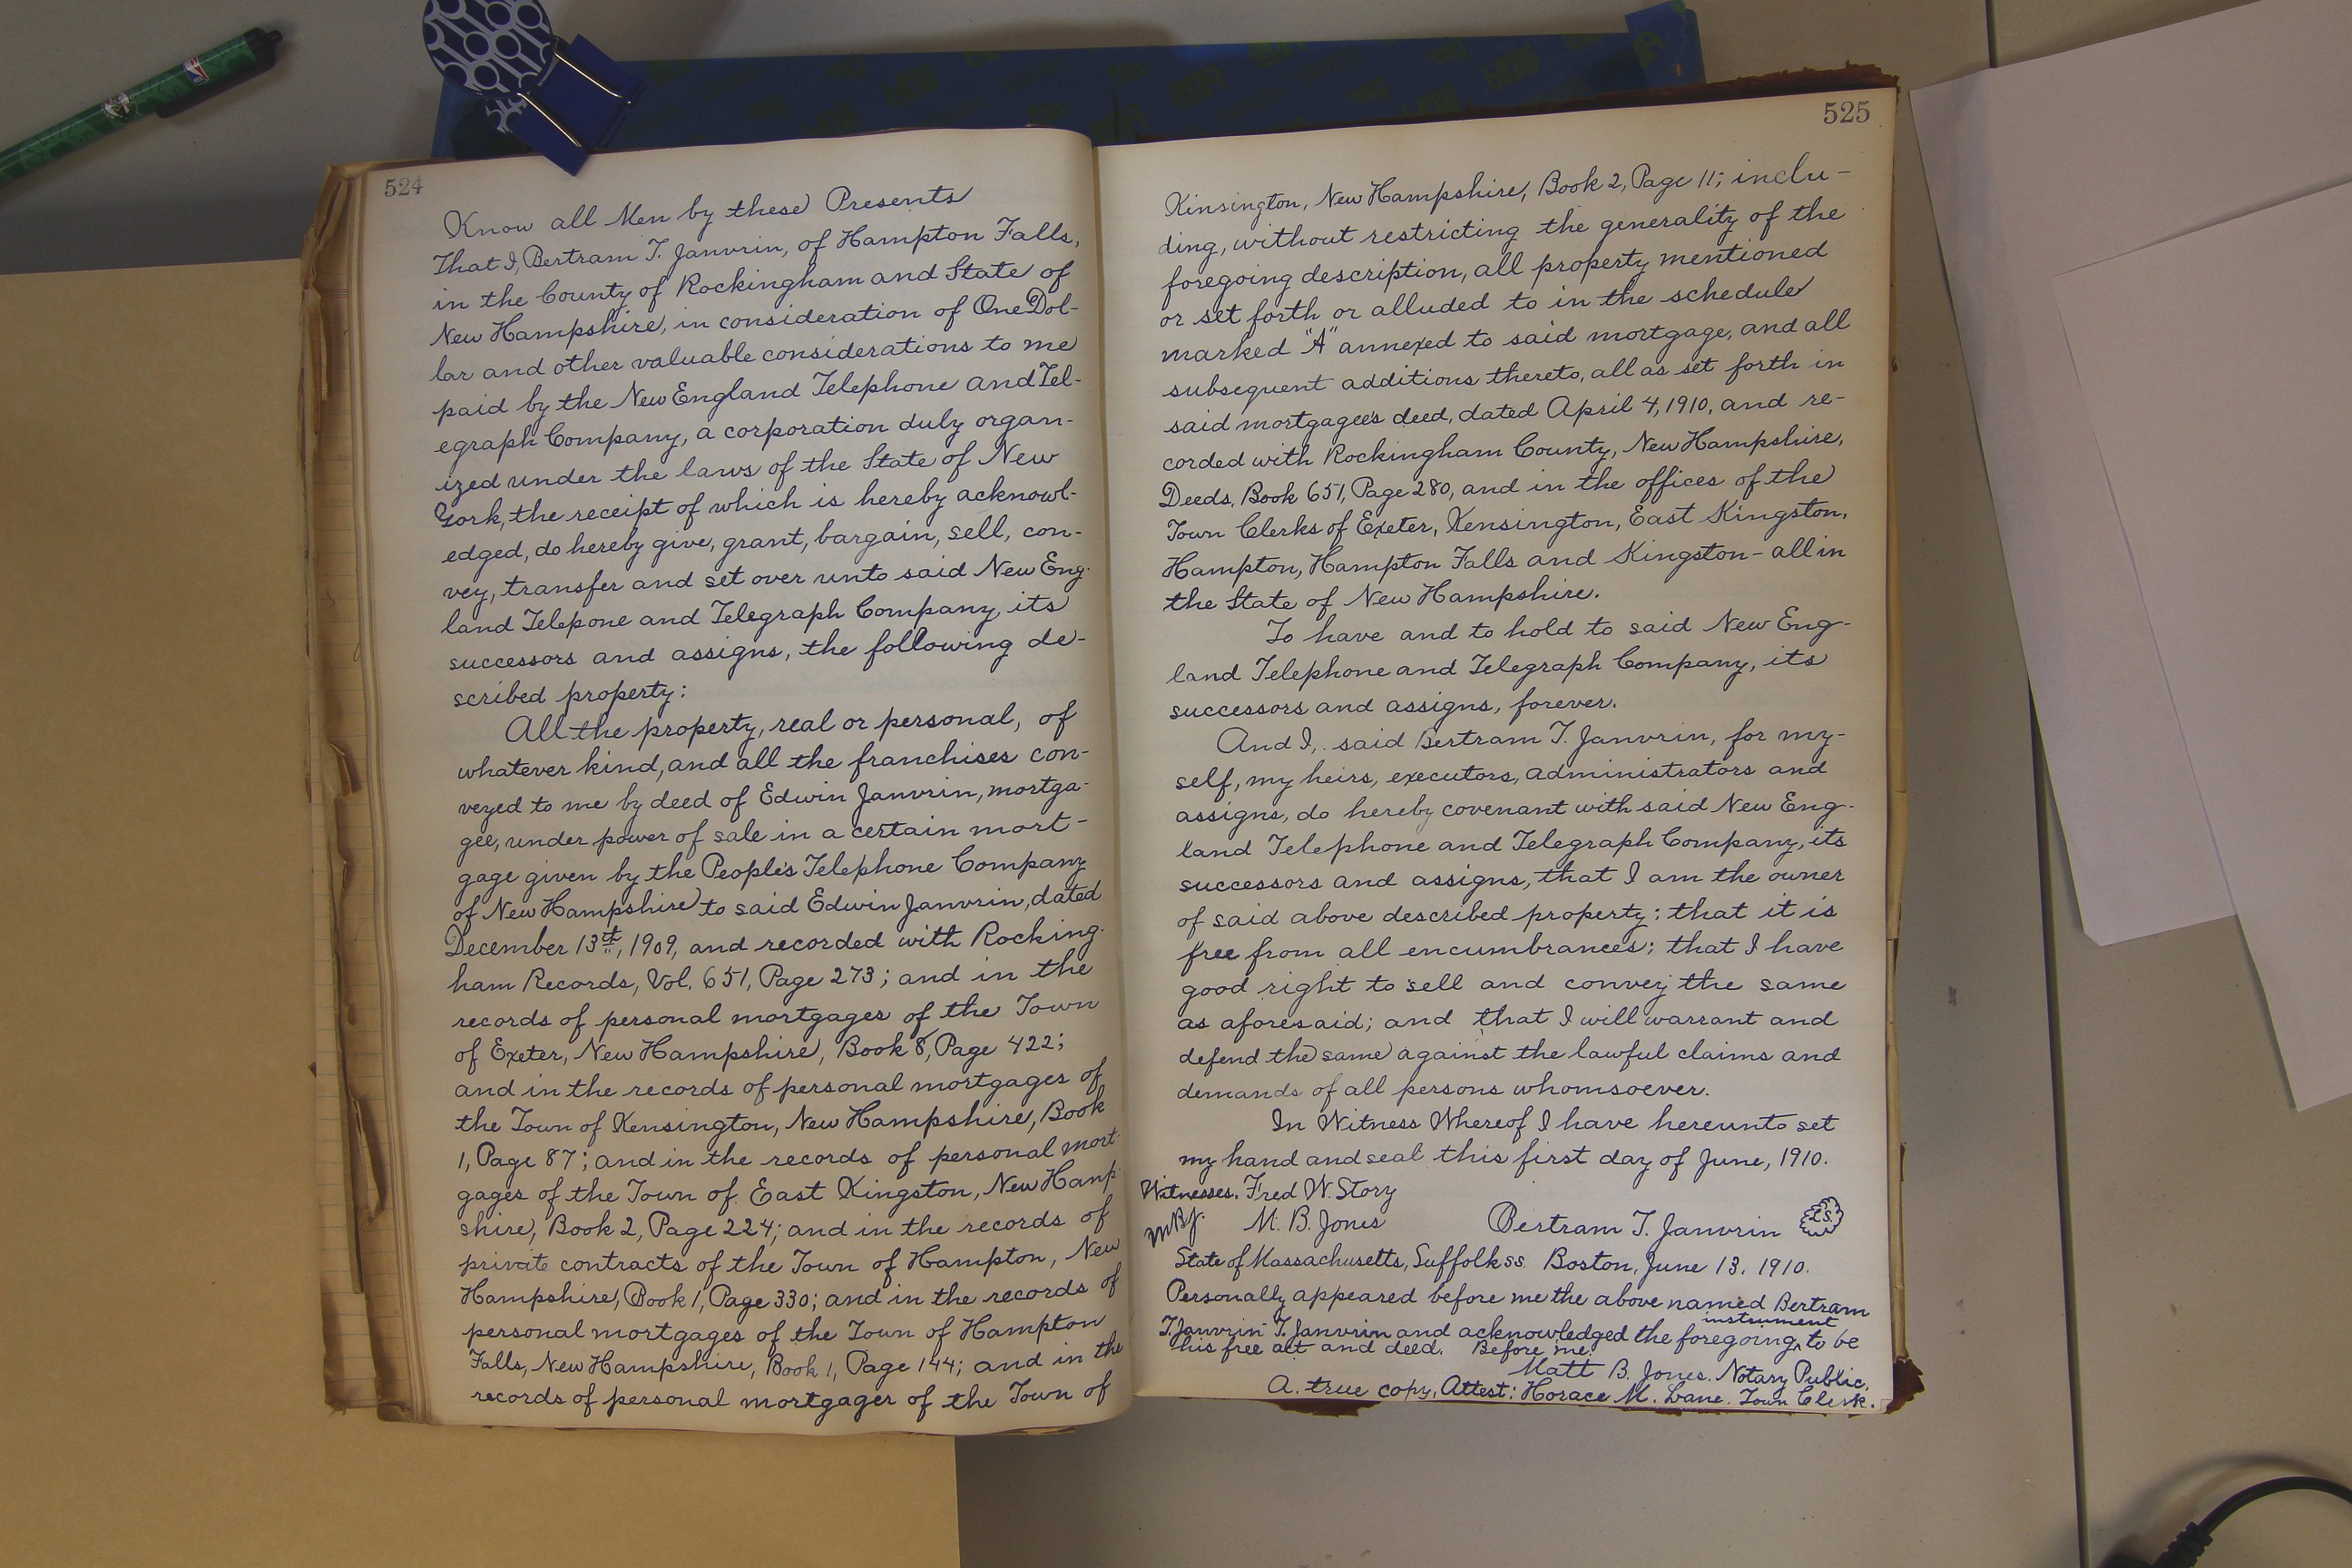 524
Know all Men by these Presents
That I, Bertram T. Janvrin, of Hampton Falls,
in the County of Rockingham and State of
New Hampshire, in consideration of One Dol-
lar and other valuable considerations to me
paid by the New England Telephone and Tel-
egraph Company, a corporation duly organ-
ized under the laws of the State of New
York, the receipt of which is hereby acknowl-
edged, do hereby give, grant, bargain, sell, con-
vey, transfer and set over unto said New Eng-
land Telepone and Telegraph Company, its
successors and assigns, the following de-
scribed property:
All the property, real or personal, of
whatever kind, and all the franchises con-
veyed to me by deed of Edwin Janvrin, mortga-
gee, under power of sale in a certain mort-
gage given by the People's Telephone Company
of New Hampshire to said Edwin Janvrin, dated
December 13th, 1909, and recorded with Rocking-
ham Records, Vol. 651, Page 273; and in the
records of personal mortgages of the Town
of Exeter, New Hampshire, Book 8, Page 422;
and in the records of personal mortgages of
the Town of Kensington, New Hampshire, Book
1, Page 87; and in the records of personal mort-
gages of the Town of East Kingston, New Hamp-
shire, Book 2, Page 224; and in the records of
private contracts of the Town of Hampton, New
Hampshire, Book 1, Page 330; and in the records of
personal mortgages of the Town of Hampton
Falls, New Hampshire, Book 1, Page 144; and in the
records of personal mortgages of the Town of
525
Kinsington, New Hampshire, Book 2, Page 11; inclu-
ding, without restricting the generality of the
foregoing description, all property mentioned
or set forth or alluded to in the schedule
marked "A" annexed to said mortgage, and all
subsequent additions thereto, all as set forth in
said mortgagee's deed, dated April 4, 1910, and re-
corded with Rockingham County, New Hampshire,
Deeds, Book 651, Page 280, and in the offices of the
Town Clerks of Exeter, Kensington, East Kingston,
Hampton, Hampton Falls and Kingston - all in
the State of New Hampshire.
To have and to hold to said New Eng-
land Telephone and Telegraph Company, its
successors and assigns, forever.
And I, said Bertram T. Janvrin, for my-
self, my heirs, executors, administrators and
assigns, do hereby covenant with said New Eng-
land Telephone and Telegraph Company, its
successors and assigns, that I am the owner
of said above described property; that it is
free from all encumbrances; that I have
good right to sell and convey the same
as aforesaid; and that I will warrant and
defend the same against the lawful claims and
demands of all persons whomsoever.
In Witness Whereof I have hereunto set
my hand and seal this first day of June, 1910.
Witnesses. Fred W. Story
M.B.J. M. B. Jones Bertram T. Janvrin L.S.
State of Massachusetts, Suffolk ss. Boston, June 13. 1910.
Personally appeared before me the above named Bertram
instrument
T. Janvrin T. Janvrin and acknowledged the foregoing ^ to be
his free act and deed. Before me:
Matt B. Jones. Notary Public.
A. true copy, Attest: Horace M. Lane. Town Clerk.